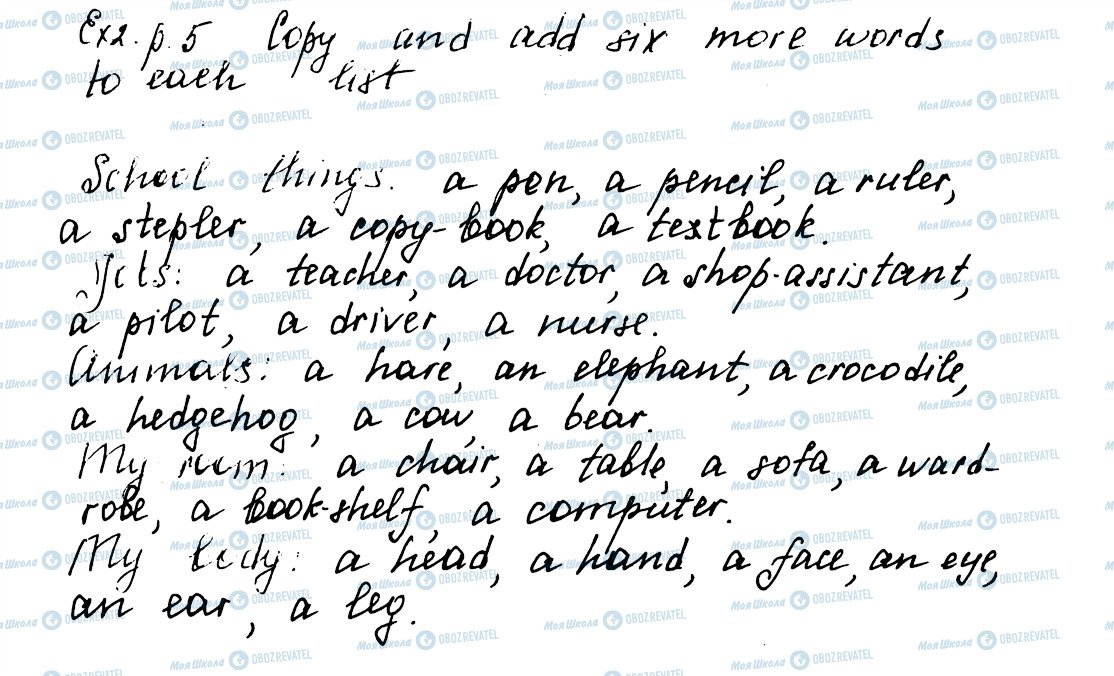 Ex2. p. 5 Copy and add six more words
to each list
School things: a pen, a pencil, a ruler,
a stepler, a copy-book, a textbook.
a teacher, a doctor, a shop-assistant,
a pilot, a driver, a nurse.
Animals: a hare, an elephant, a crocodile,
a hedgehog, a cow, a bear.
My room: a chair, a table, a sofa, a ward-
robe, a book-shelf, a computer.
My body: a head, a hand, a face, an eye,
an ear, a leg.